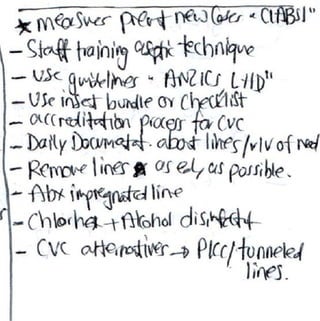 * measures prevent new Cases "CLABSI"
- Staff training aseptic technique
- Use guidelines "ANZICS LHD"
- Use insert bundle or checklist
- accreditation process for CVC
- Daily Documentat. about lines/r/v of need
- Remove lines as early as possible.
- Abx impregnated line
- Chlorhex + Alcohol disinfect
- CVC alternatives → PICC/tunneled
lines.